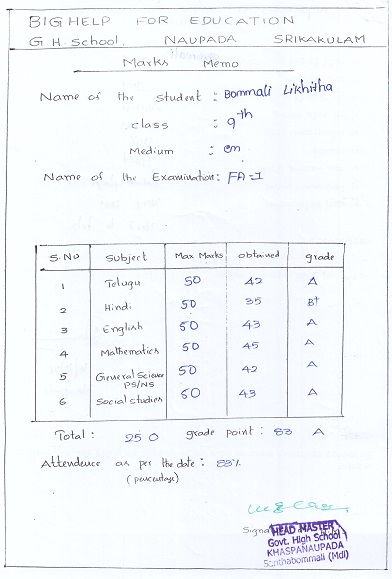 BIGHELP FOR EDUCATION
G.H. School, NAUPADA SRIKAKULAM
Marks Memo
Name of the student : Bommali Likhitha
class : 9th
Medium : em
Name of the Examination: FA-I
S.No Subject Max Marks obtained grade
1 Telugu 50 42 A
2 Hindi 50 35 B+
3 English 50 43 A
4 Mathematics 50 45 A
5 General Science PS/NS 50 42 A
6 Social studies 50 43 A
Total : 250 grade point : 83 A
Attendence as per the date : 83%
(percentage)
HEAD MASTER
Govt. High School
KHASPANAUPADA
Santhabommali (Mdl)